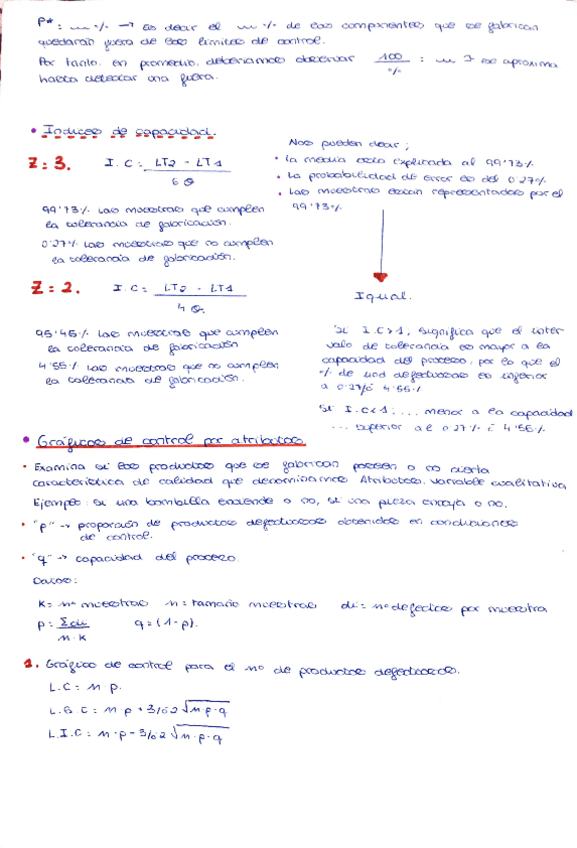 P* : __ % → es decir el __ % de los componentes que se fabrican
quedaran fuera de los limites de control.
Por tanto, en promedio, deberiamos observar 100/% : __ se aproxima
hasta detectar una fuera.
• Indices de capacidad.
Z = 3. I.C = LT2 - LT1 / 6 σ
99'73% las muestras que cumplen
la tolerancia de fabricación.
0'27% las muestras que no cumplen
la tolerancia de fabricación.
Nos pueden decir;
• la media está explicada al 99'73%
• La probabilidad de error es del 0'27%
• Las muestras están representadas por el
99'73%
Igual.
Z = 2. I.C = LT2 - LT1 / 4 σ
95'45% las muestras que cumplen
la tolerancia de fabricación
4'55% las muestras que no cumplen
la tolerancia de fabricación.
Si I.C>1, significa que el inter
valo de tolerancia es mayor a la
capacidad del proceso, por lo que el
% de uds defectuosas es inferior
a 0'27% ó 4'55%
Si I.C<1; ... menor a la capacidad
... superior al 0'27% ó 4'55%
• Gráficos de control por atributos.
• Examina si los productos que se fabrican poseen o no cierta
característica de calidad que denominamos Atributos. Variable cualitativa
Ejemplo: si una bombilla enciende o no, si una pieza encaja o no.
• "p" → proporción de productos defectuosos obtenidos en condiciones
de control.
• "q" → capacidad del proceso.
Datos:
K = nº muestras n = tamaño muestras di = nº defectos por muestra
p = Σdi / n·k q = (1-p).
1. Gráfico de control para el nº de productos defectuosos.
L.C = n·p.
L.S.C = n·p + 3/ó2 √n·p·q
L.I.C = n·p - 3/ó2 √n·p·q